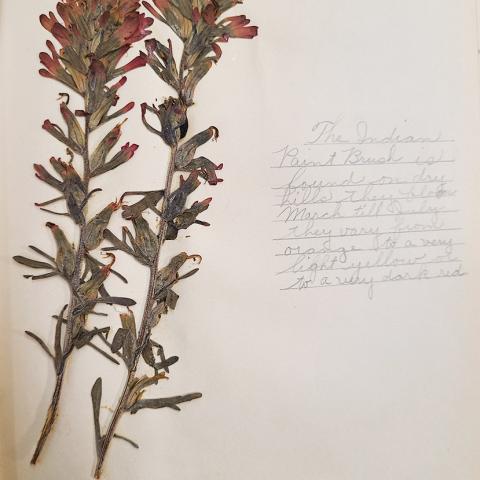 The Indian
Paint Brush is
found on dry
hills. They bloom
March till July.
they vary from
orange to a very
light yellow or
to a very dark red